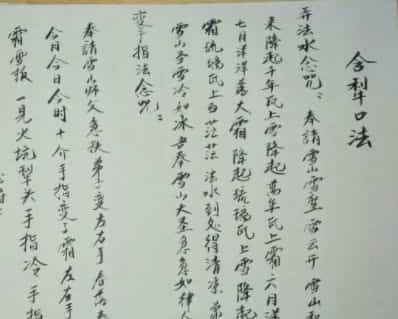 含犁口法
弄法水念咒：奉請雪山雪聖雪云開 雪山和
來降起千年瓦上雪降起萬年瓦上霜六月洋
七月洋洋落大霜降起琉璃瓦上雪降起
霜琉璃瓦上白茫茫法水到处得清凉
雪山令雪冷如冰吾奉雪山大圣急急如律令
变手指法念咒：
奉請雪山师父急扶弟子变左右手
今月今日今时十个手指变了霜左右手
霜雪板 一見火坑犁头手指冷手指